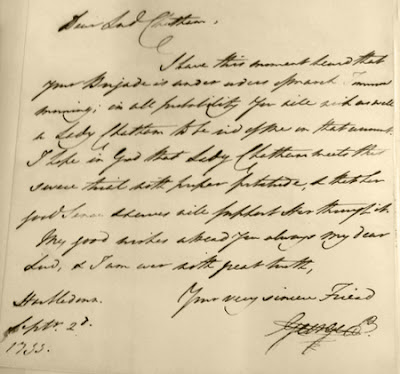 Dear Lord Chatham,
I have this moment heard that
your Brigade is under orders of march Tomorrow
morning; in all probability you will wish as well
as Lady Chatham to be rid of me on that account.
I hope in God that Lady Chatham meets this
severe trial with proper fortitude, & that her
good Sense & nerves will support Her through it.
My good wishes attend you always my dear
Lord, & I am ever with great truth,
Your very sincere Friend
Septr. 2d.